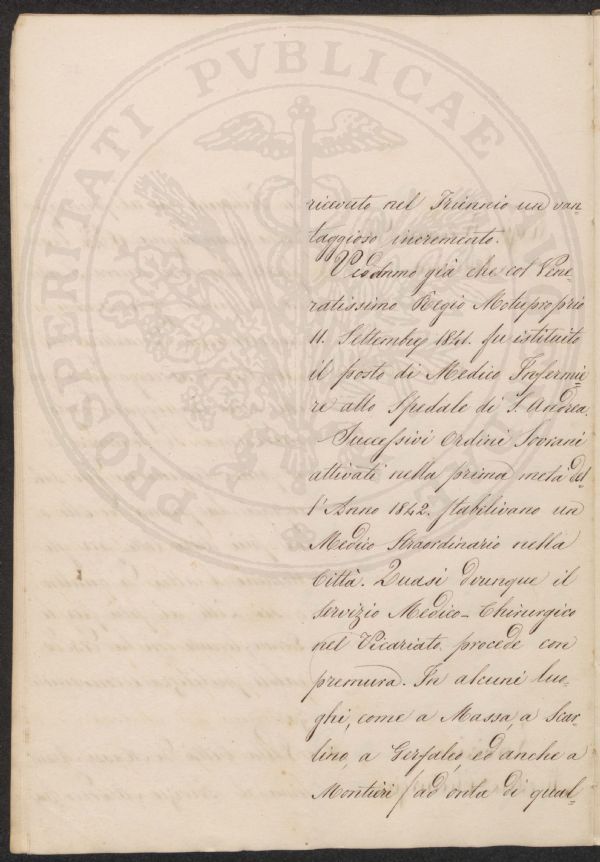 PROSPERITATI PVBLICAE
ricevuto nel Triennio un van-
taggioso incremento.
Vedemmo già che col Vene-
ratissimo Regio Motuproprio
11. Settembre 1841. fu istituito
il posto di Medico Infermie-
re allo Spedale di S. Andrea.
Successivi Ordini Sovrani
attivati nella prima metà del-
l'Anno 1842. stabilivano un
Medico Straordinario nella
Città. Quasi dovunque il
servizio Medico-Chirurgico
nel Vicariato procede con
premura. In alcuni luo-
ghi, come a Massa, a Scar-
lino, a Gerfalco, ed anche a
Montieri (ad onta di qual-